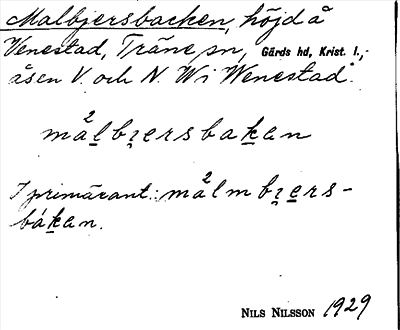 Malbjersbacken, höjd å
Venestad, Träne sn, Gärds hd, Krist. l.,
åsen V. och N. W i Wenestad.
må2lbjersbakan
I primäcant.: må2lmbjers-
bákan.
NILS NILSSON 1929